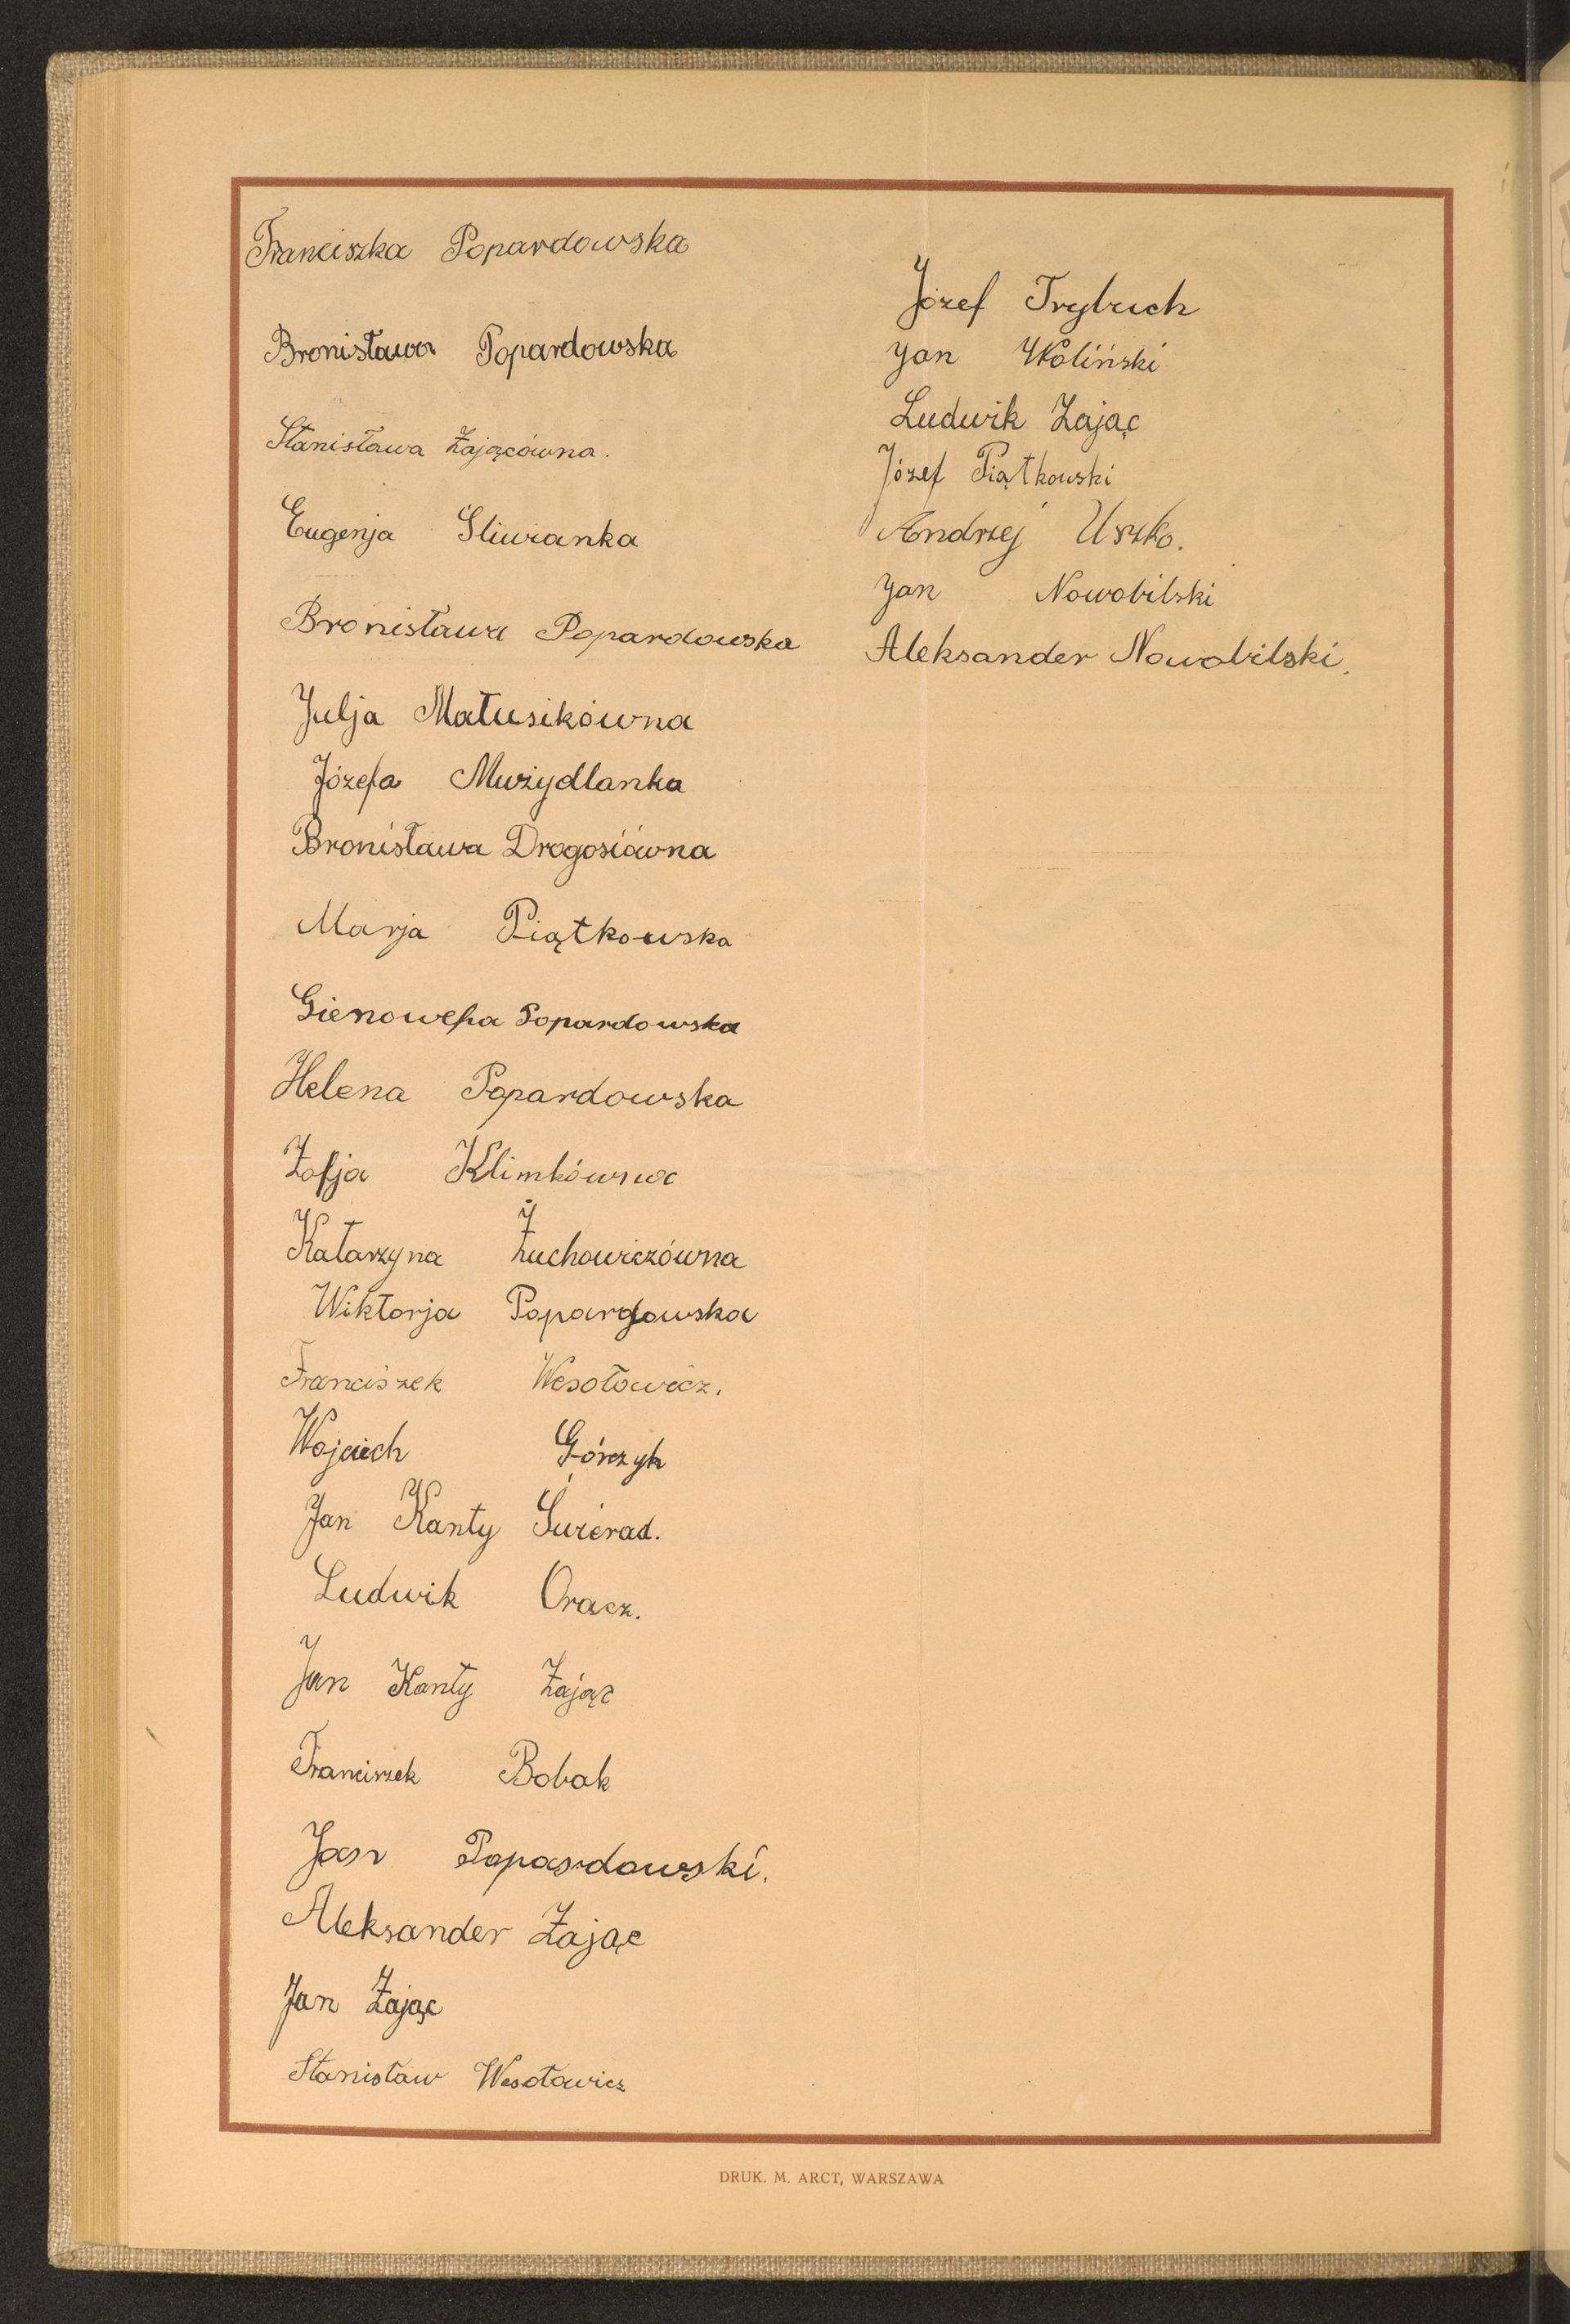 Franciszka Popardowska
Bronisława Popardowska
Stanisława Zającówna.
Eugenja Śliwianka
Bronisława Popardowska
Julja Matusikówna
Józefa Muzydlanka
Bronisława Drogosiówna
Marja Piątkowska
Gienowefa Popardowska
Helena Popardowska
Zofja Klimkówna
Katarzyna Żuchowiczówna
Wiktorja Popardowska
Franciszek Wesołowicz.
Wojciech Górczyk
Jan Kanty Świerad.
Ludwik Oracz.
Jan Kanty Zając
Franciszek Bobak
Jan Popardowski.
Aleksander Zając
Jan Zając
Stanisław Wesołowicz
Józef Trybuch
Jan Woliński
Ludwik Zając
Józef Piątkowski
Andrzej Uszko.
Jan Nowobilski
Aleksander Nowobilski.
DRUK. M. ARCT, WARSZAWA